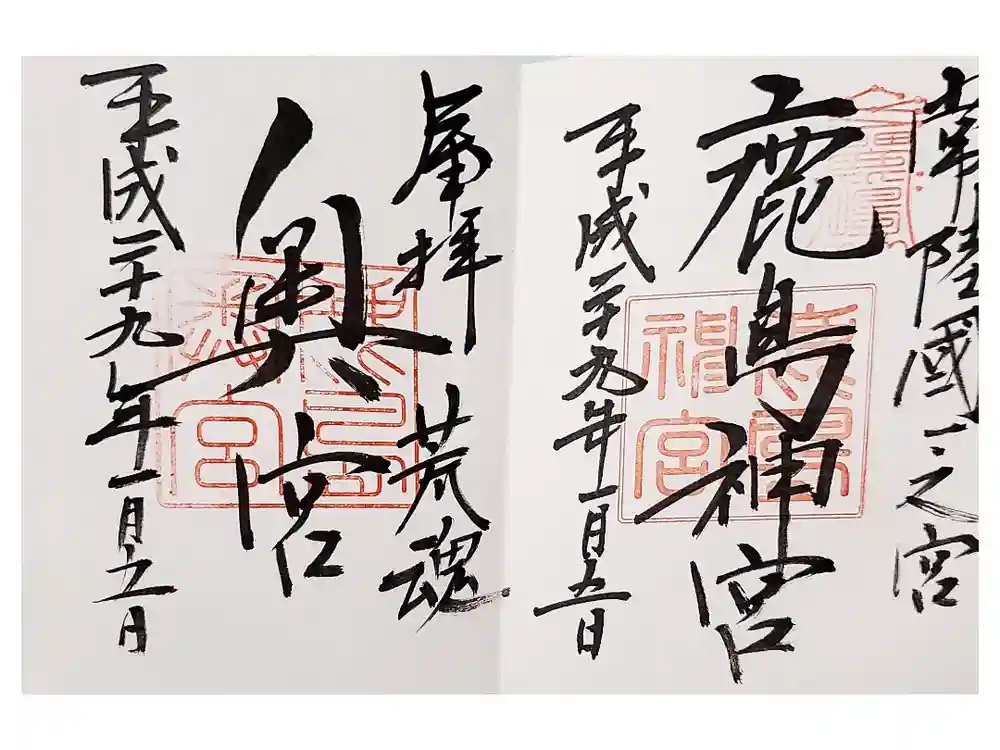 常陸國一之宮
鹿島神宮
平成二十九年一月五日
奉拝 荒魂
奥宮
平成二十九年一月五日